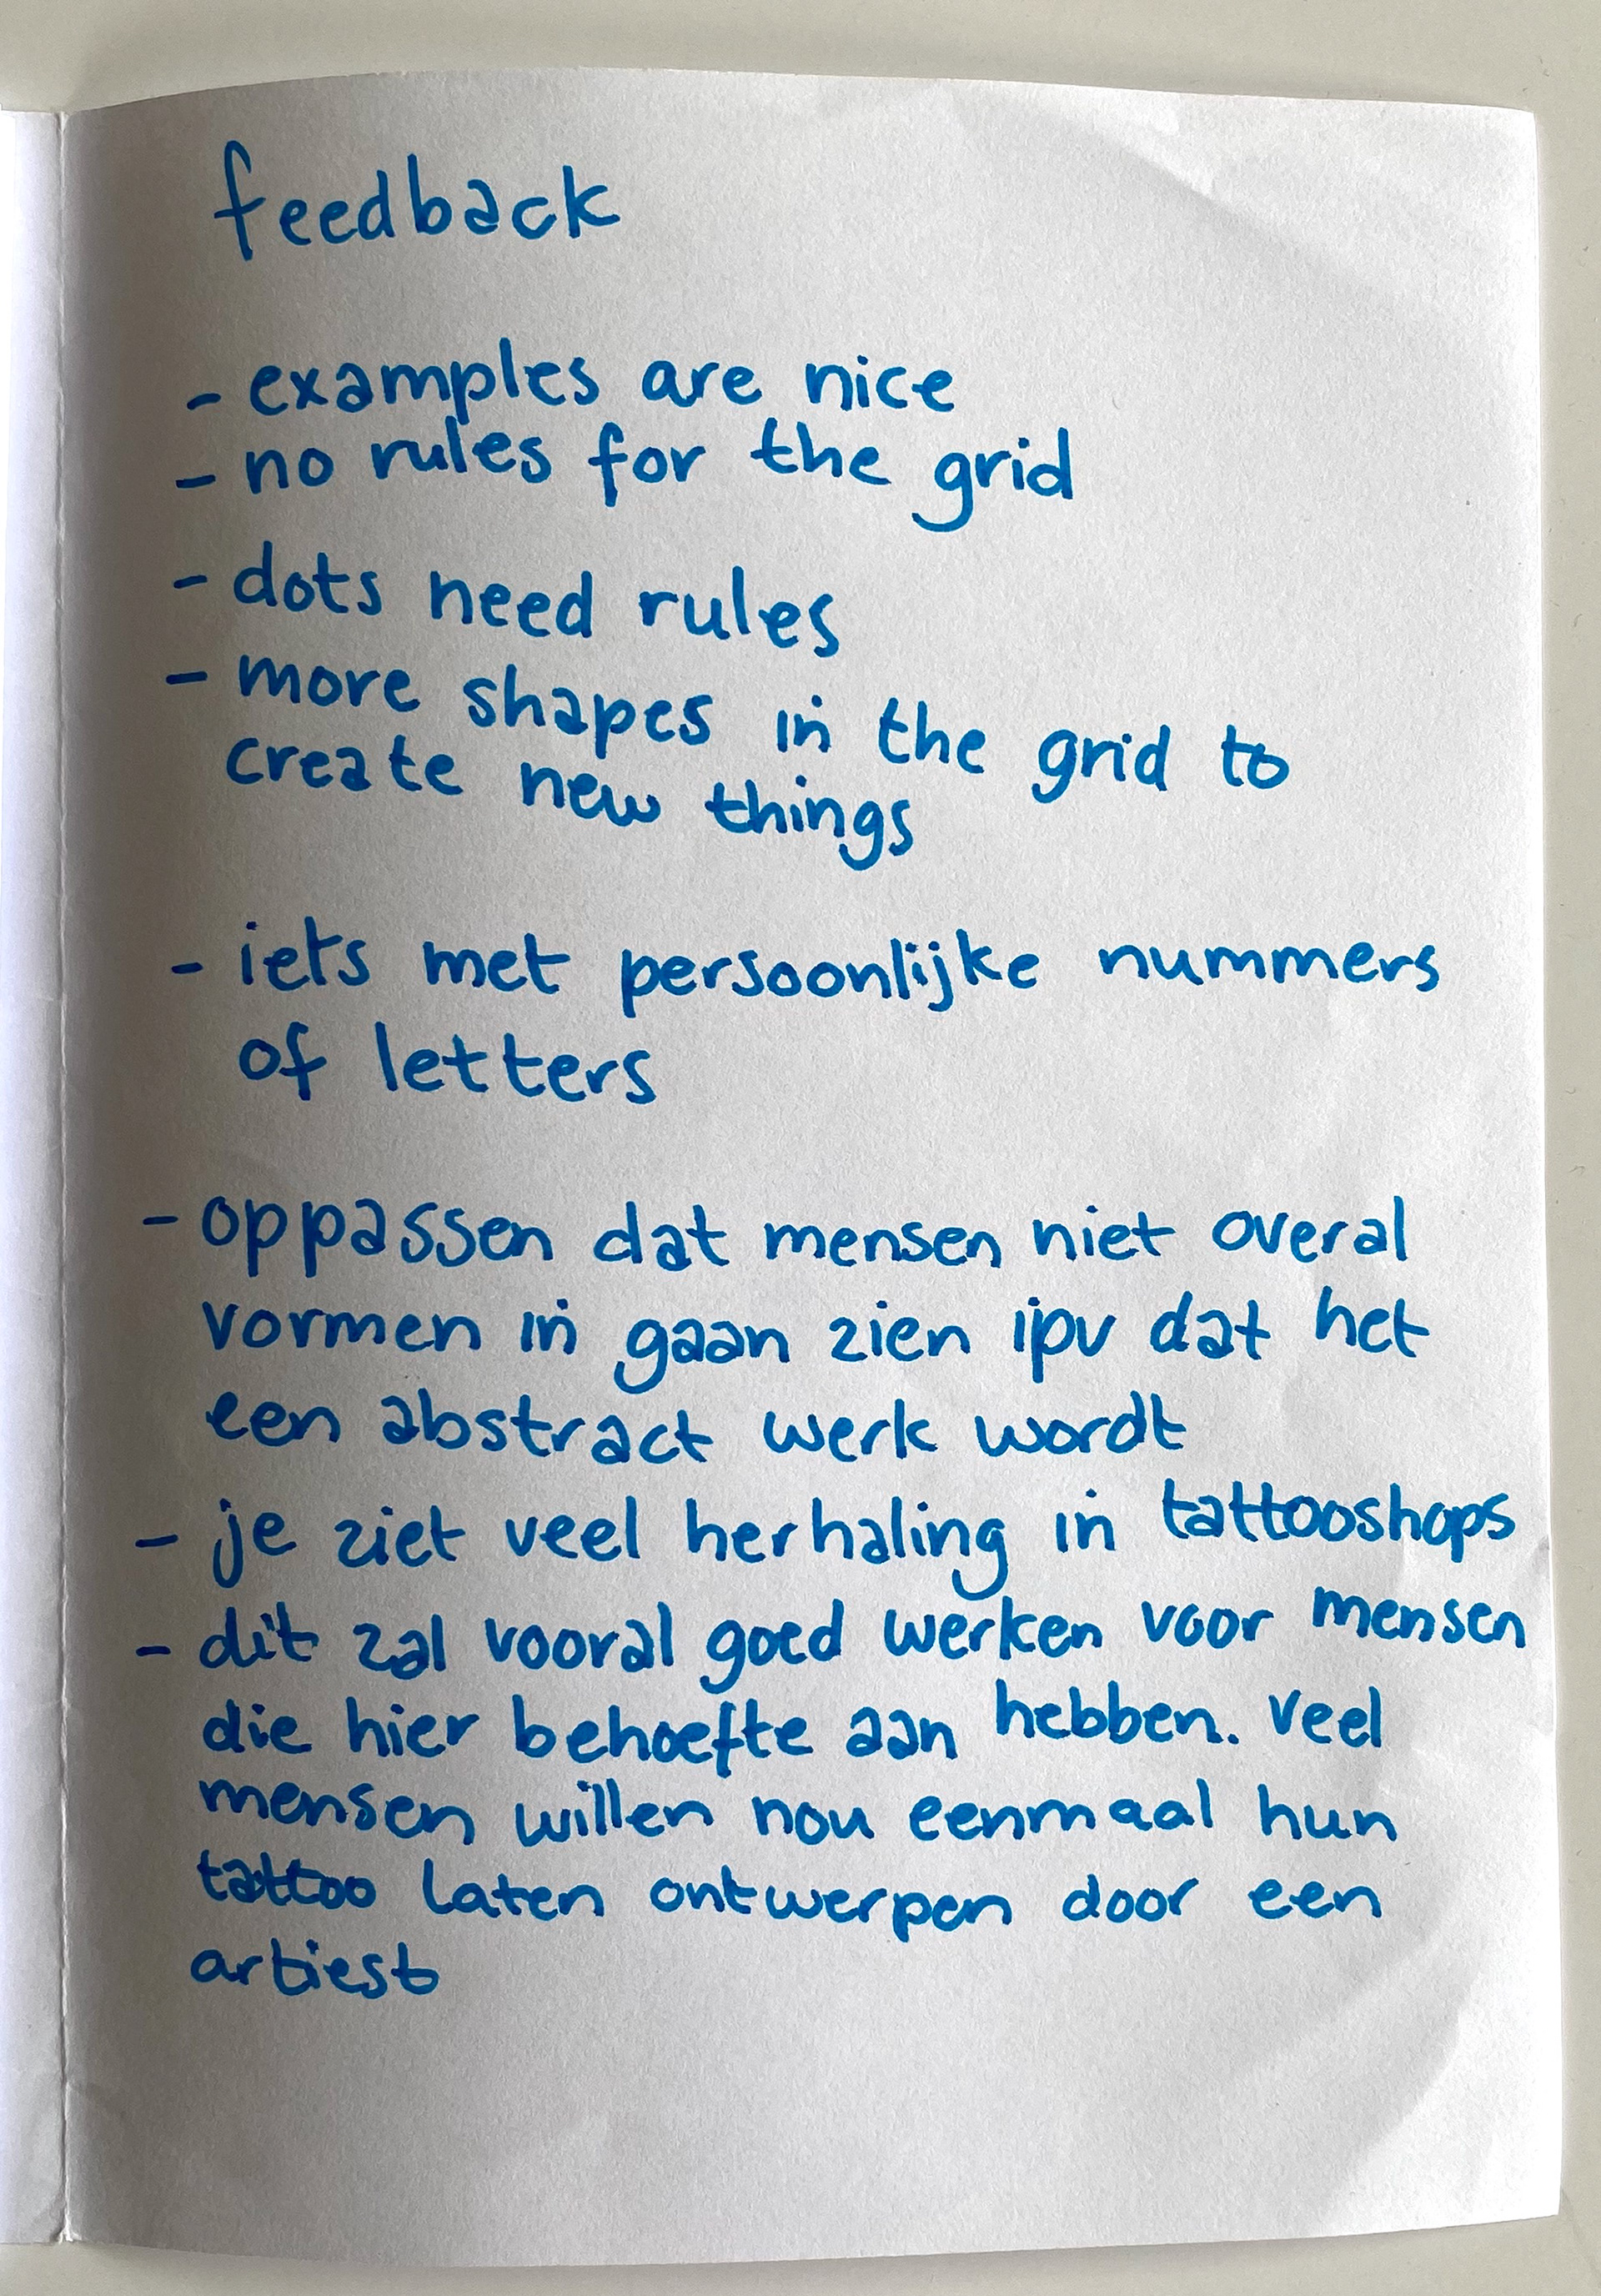 feedback
- examples are nice
- no rules for the grid
- dots need rules
- more shapes in the grid to
create new things
- iets met persoonlijke nummers
of letters
- oppassen dat mensen niet overal
vormen in gaan zien ipv dat het
een abstract werk wordt
- je ziet veel herhaling in tattooshops
- dit zal vooral goed werken voor mensen
die hier behoefte aan hebben. veel
mensen willen nou eenmaal hun
tattoo laten ontwerpen door een
artiest